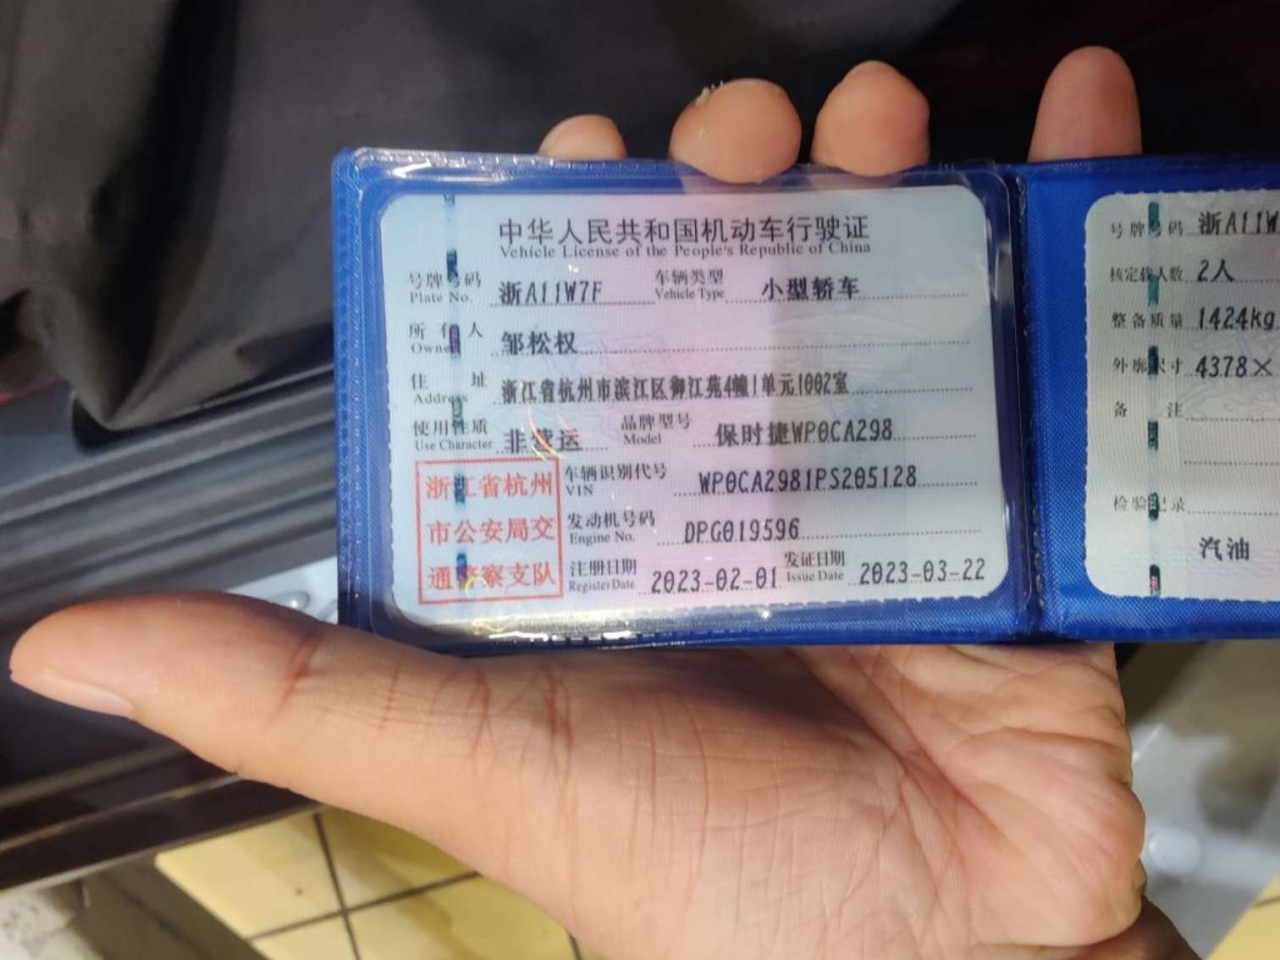 中华人民共和国机动车行驶证
Vehicle License of the People's Republic of China
号牌号码 浙A11W7F 车辆类型 小型轿车
Plate No. Vehicle Type
所有人 邹松权
Owner
住址 浙江省杭州市滨江区御江苑4幢1单元1002室
Address
使用性质 非营运 品牌型号 保时捷WP0CA298
Use Character Model
浙江省杭州
市公安局交
通警察支队
车辆识别代号 WP0CA2981PS205128
VIN
发动机号码 DPG019596
Engine No.
注册日期 2023-02-01 发证日期 2023-03-22
Register Date Issue Date
号牌号码 浙A11W
核定载人数 2人
整备质量 1424kg
外廓尺寸 4378×
备注
检验记录
汽油